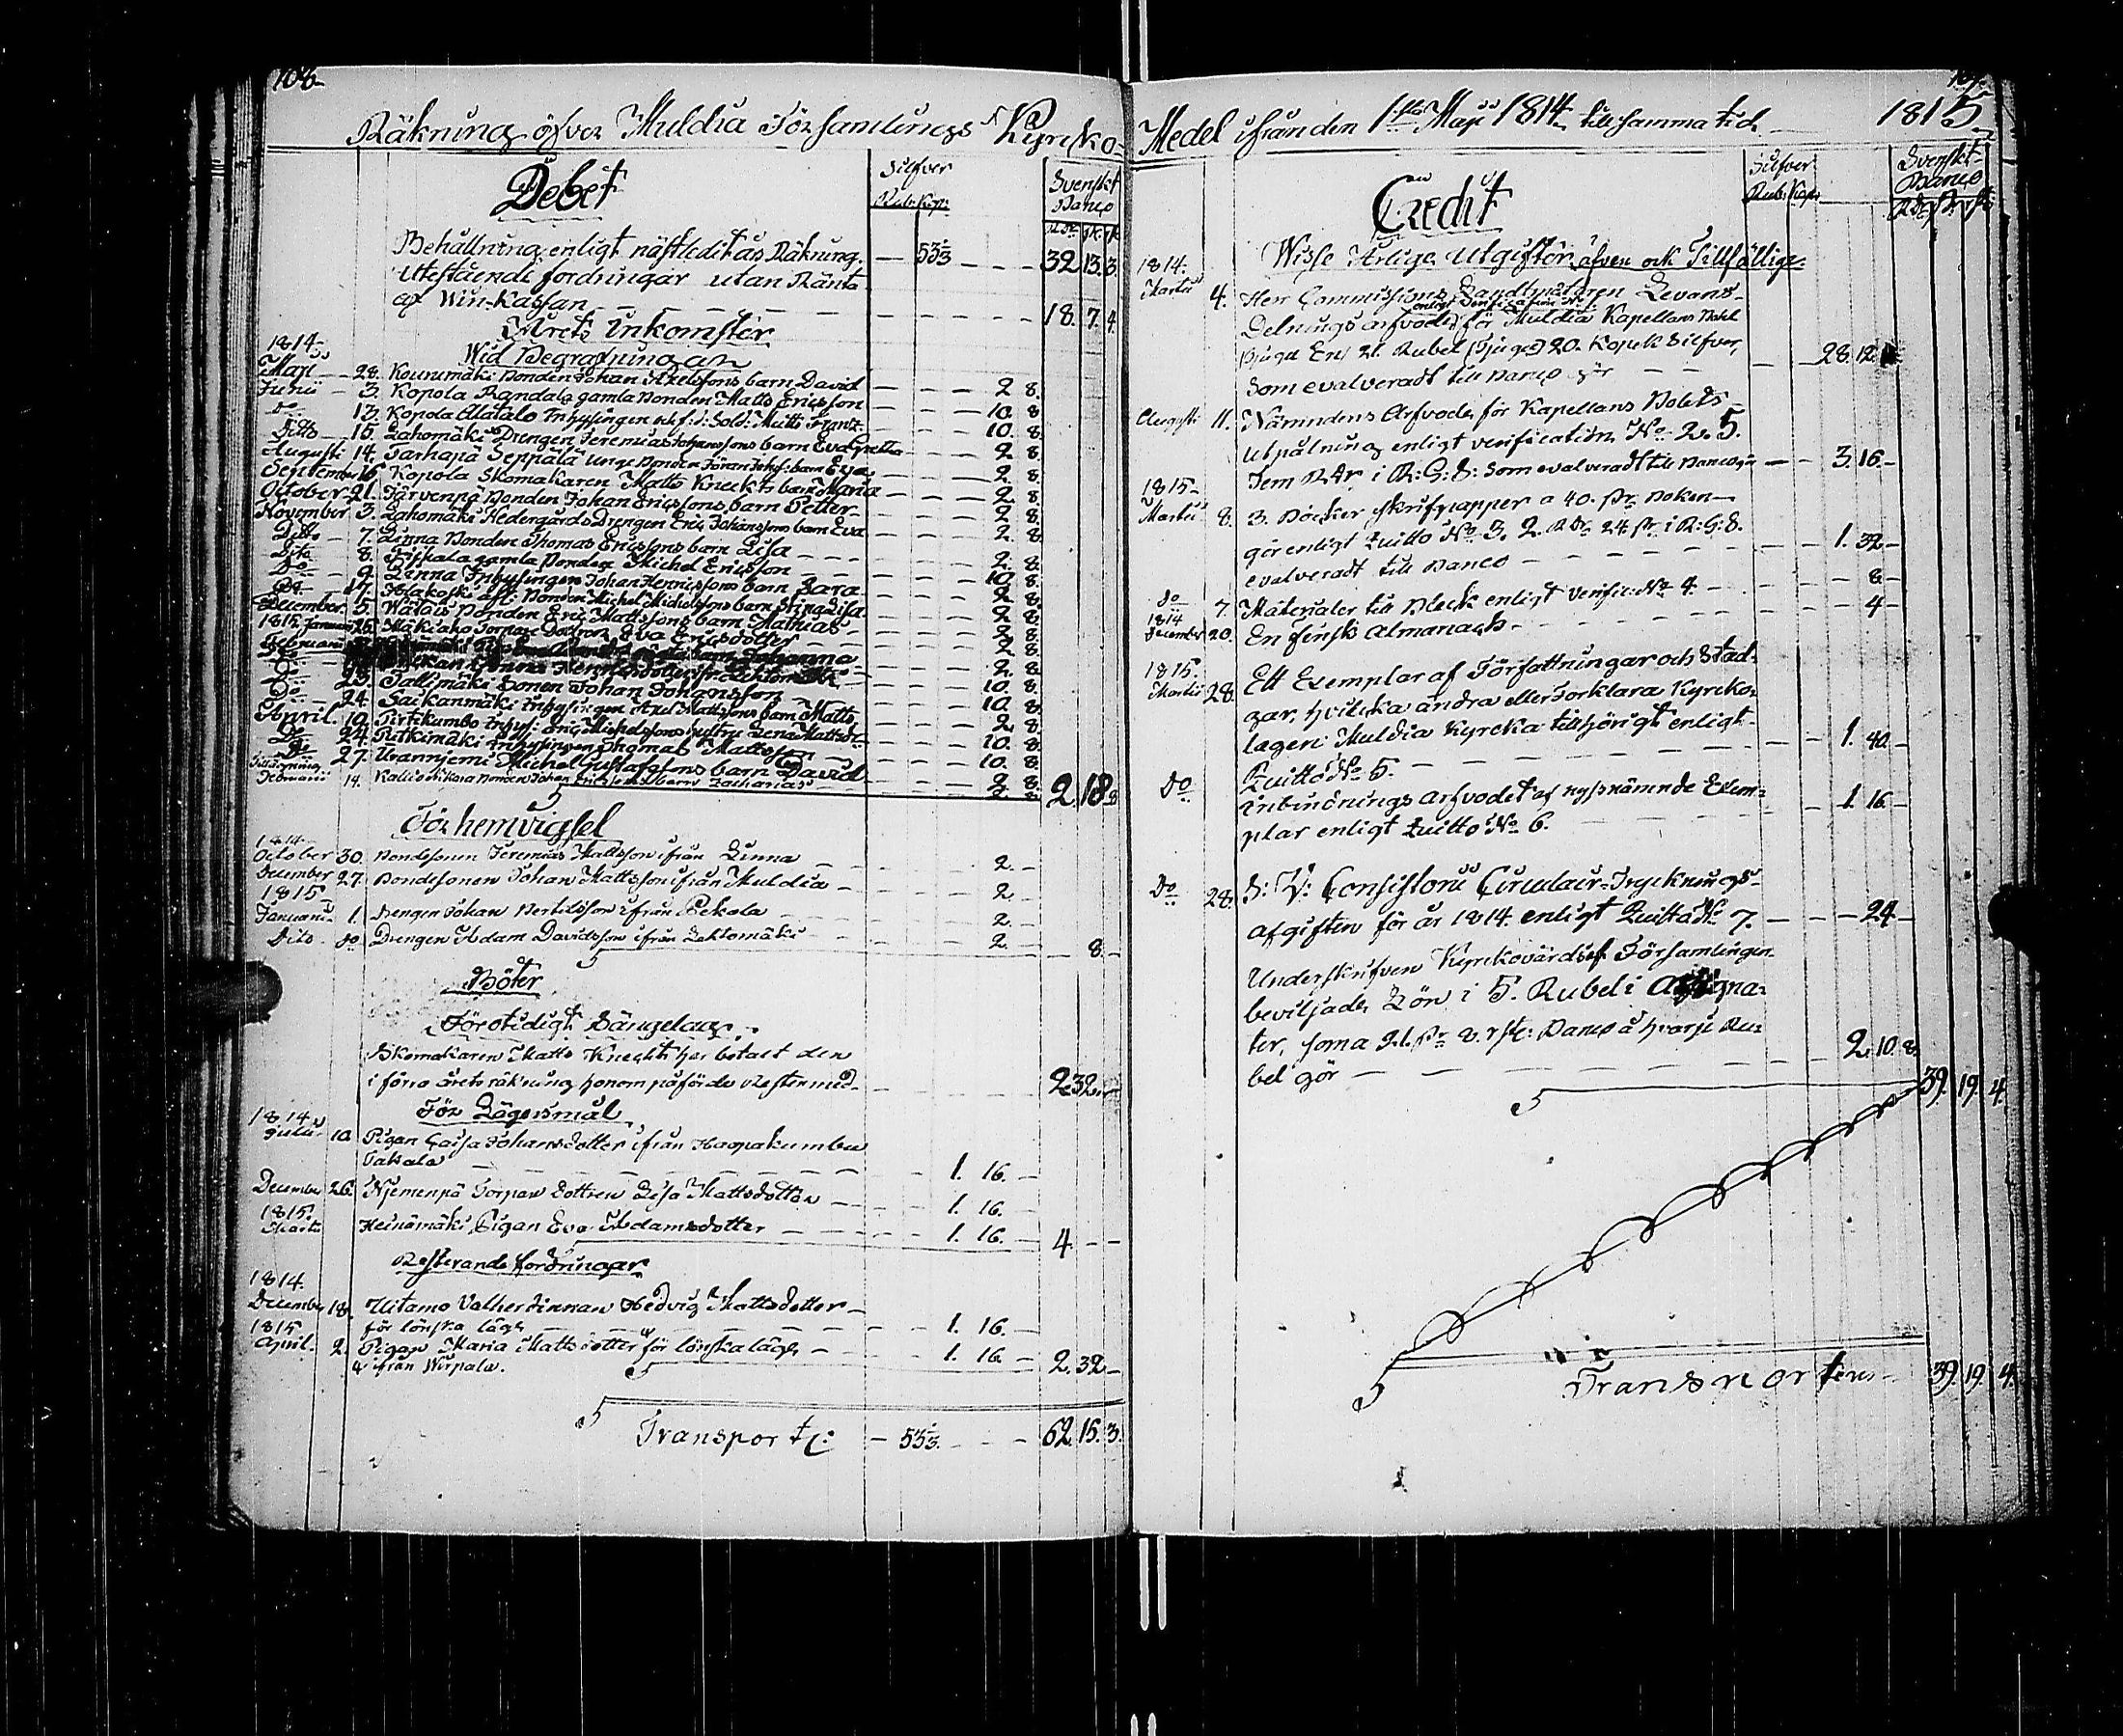 108.
Räkning öfver Muldia Församlings Kyrko-
Debet
Silfver
Rub. Kop.
Svenskt
Banco
Behållning enligt nästledit års Räkning. — 53⅓ — — — 32. 13. 3.
Utestående fordringar utan Ränta
af Win-Kassan — — — 18. 7. 4.
Årets Inkomster
Wid Begrafningar
1814.
Maji — 28. Bonden Johan Axelssons barn David — — — 2 8.
Junii — 3. Kopola Randala gamla Bonden Matts Ericsson — — — 10. 8
Do 13. Kopola Alatalo Inhysingen och f.d. Sold: Matts Frant: — — — 10. 8.
Ditto — 15. Lahomäki Drengen Jeremias Johanssons barn Eva Gretta — — — 2 8.
Augusti 14. Tarhapä Seppälä unge Bonden barn Eva — — — 2 8.
September 16. Kopola Skomakaren Matts Knechts barn Maria — — — 2 8.
October 21. Järvenpä Bonden Johan Ericssons barn Petter — — — 2 8.
November 3. Lahomäki Hedengårds Drengen Eric Johanssons barn Eva — — — 2. 8.
Ditto — 7. Linna Bonden Thomas Ericssons barn Lisa — — — 2. 8.
Dito 8. gamla Bonden Michel Ericsson — — — 10. 8.
Do — 9. Linna Inhysingen Johan Henricssons barn Sara — — — 2 8.
Do 17. Bonden Michel Michelssons barn Stina Lisa — — — 2 8.
December. 5. Bonden Eric Mattssons barn Mathias — — — 2 8.
1815. Januari 25. Mäkiaho Torpare Eva Ericsdotter — — — 2 8.
Februarii barn Johanna — — — 2 8.
Do — — — 10. 8.
Do 23. Tallmäki Sonen Johan Johansson — — — 10. 8.
Do — 24. Saikanmäki Inhysingen Axel Mattssons barn Matts — — — 2 8.
April. 10. Pirtikumbo Inhys: Eric Michelssons hustru Lena Mattsd:r — — — 10. 8.
Do 24. Pitkimäki Inhysingen Thomas Mattsson — — — 10. 8.
Do 27. Uranniemi Michel Gustafssons barn David — — — 2 8.
Februarii 14. Bonden Johan barn Zacharias — — — 2. 8. 2. 18. 8
För hemvigsel
1814.
October 30. Bondesonen Jeremias Mattsson ifrån Linna — — 2. —
December 27. Bondesonen Johan Mattsson ifrån Muldia — 2. —
1815
Januarii 1. Drengen Johan Bertilsson ifrån Pekola — — 2. —
Dito. do Drengen Adam Davidsson ifrån Lahtomäki — — 2. — — 8. —
Böter
För otidigt Sängelag.
Skomakaren Matts Knecht har betalt den
i förra årets räkning honom påförde Rest med — — — 2. 32. —
För Lägersmål
1814
Julii 10. Pigan Caisa Johansdotter ifrån Haapakumbu
Takala — — — 1. 16. —
December 26. Niemenpä Torpare dottren Lisa Mattsdotter — — 1. 16. —
1815.
Martii Heinämäki Pigan Eva Adamsdotter — — — 1. 16. — 4. — —
Resterande fordringar
1814.
December 18. Uitamo Valherdinnan Hedvig Mattsdotter —
för lönska läge — — — 1. 16. —
1815
April. 2. Pigan Maria Mattsdotter för lönska läge — — 1. 16. — 2. 32 —
ifrån Wirpala.
Transport — 53⅓. — — — 62. 15. 3.
Medel ifrån den 1sta Maji 1814. till samma tid
1815.
Credit
Silfver
Rub. Kop.
Svenskt
Banco
Wisse Årlige Utgifter, äfven ock Tillfällige
1814.
Martii 4. Herr Commissions Landtmätaren Levans
enligt Verification N:o 1.
Delnings arfvode, för Muldia Kapellans Bohl
tjugu En/ 21. Rubel (tjuge) 20. Kopek Silfver,
som evalveradt till Banco gör — — — 28. 12.
Augusti 11. Nämndens Arfvode för Kapellans Bolets
utpålning enligt verification N:o 2. 5.
Fem Rdr i R:G:S: som evalveradt till Banco gör — — 3. 16. —
1815.
Martii 8. 3. Böcker skrifpapper a 40. sk. Boken —
gör enligt Quitto N:o 3. 2. Rdr 24 sk. i R:G:S.
evalveradt till Banco — — — 1. 32 —
do 7. Materialer till Bleck enligt Verific: N:o 4. — — — 8 —
1814
December 20. En finsk Almanach — — — 4 —
1815.
Martii 28. Ett Exemplar af Författningar och Stad-
gar, hvilcka ändra eller förklara Kyrcko-
lagen Muldia Kyrcka tillhörigt enligt
Quitto N:o 5. — — — 1. 40. —
Do Inbindnings arfvodet af nyssnämnde Exem-
plar enligt Quitto N:o 6. — — 1. 16. —
Do 28. S: V: Consistorii Circulair-Trycknings-
afgiften för år 1814. enligt Quitto N:o 7. — — — 24. —
Underskrifven Kyrkovärds af Församlingen
beviljade Lön i 5. Rubel i Assigna-
ter, Banco å hvarje Ru-
bel gör — — — 2. 10. 8.
39. 19. 4.
Transporteras 39. 19. 4.